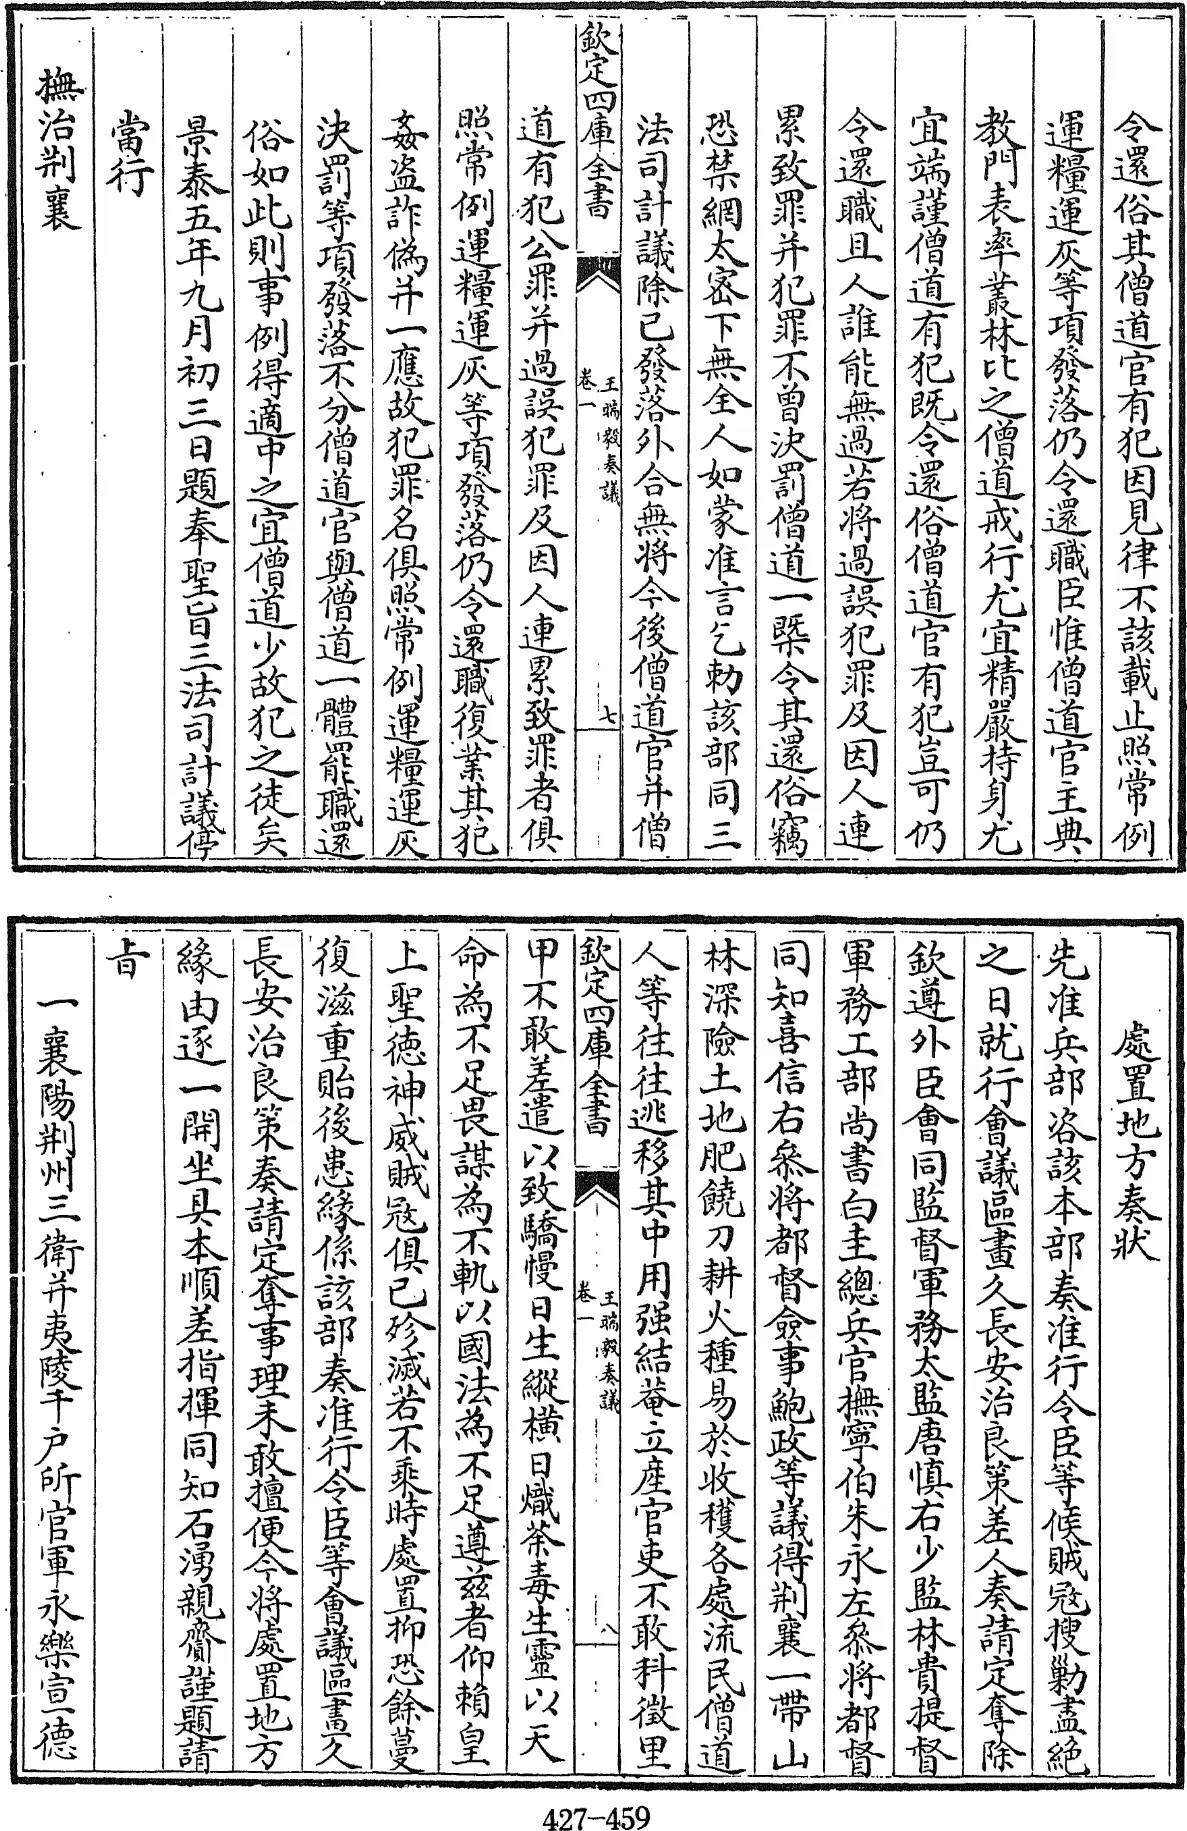 令還俗其僧道官有犯因見律不該載止照常例
運糧運灰等項發落仍令還職臣惟僧道官主典
教門表率叢林比之僧道戒行尤宜精嚴持身尤
宜端謹僧道有犯既令還俗僧道官有犯豈可仍
令還職且人誰能無過若將過誤犯罪及因人連
累致罪并犯罪不曾決罰僧道一槩令其還俗竊
恐禁網太密下無全人如蒙准言乞勅該部同三
法司計議除已發落外合無將今後僧道官并僧
欽定四庫全書
王端毅奏議
卷一
七
道有犯公罪并過誤犯罪及因人連累致罪者俱
照常例運糧運灰等項發落仍令還職復業其犯
姦盜詐偽并一應故犯罪名俱照常例運糧運灰
決罰等項發落不分僧道官與僧道一體罷職還
俗如此則事例得適中之宜僧道少故犯之徒矣
景泰五年九月初三日題奉聖旨三法司計議停
當行
撫治荆襄
處置地方奏狀
先准兵部咨該本部奏准行令臣等候賊寇搜勦盡絶
之日就行會議區畫久長安治良策差人奏請定奪除
欽遵外臣會同監督軍務太監唐慎右少監林貴提督
軍務工部尚書白圭總兵官撫寧伯朱永左叅將都督
同知喜信右叅將都督僉事鮑政等議得荆襄一帶山
林深險土地肥饒刀耕火種易於收穫各處流民僧道
人等往往逃移其中用强結菴立産官吏不敢科徵里
欽定四庫全書
王端毅奏議
卷一
八
甲不敢差遣以致驕慢日生縱横日熾荼毒生靈以天
命為不足畏謀為不軌以國法為不足遵兹者仰賴皇
上聖徳神威賊寇俱已殄滅若不乘時處置抑恐餘蔓
復滋重貽後患緣係該部奏准行令臣等會議區畫久
長安治良策奏請定奪事理未敢擅便今將處置地方
緣由逐一開坐具本順差指揮同知石湧親齎謹題請
旨
一襄陽荆州三衛并夷陵千户所官軍永樂宣德
427-459